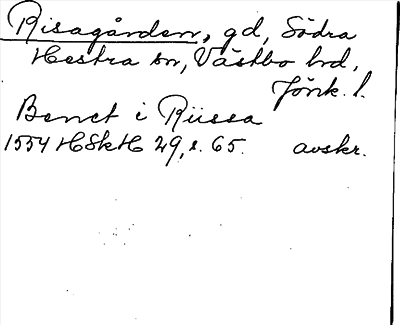 Risagården, gd, Södra
Hestra sn, Västbo hd,
Jönk. l.
Benct i Riissa
1554 HSkH 29, s. 65. avskr.